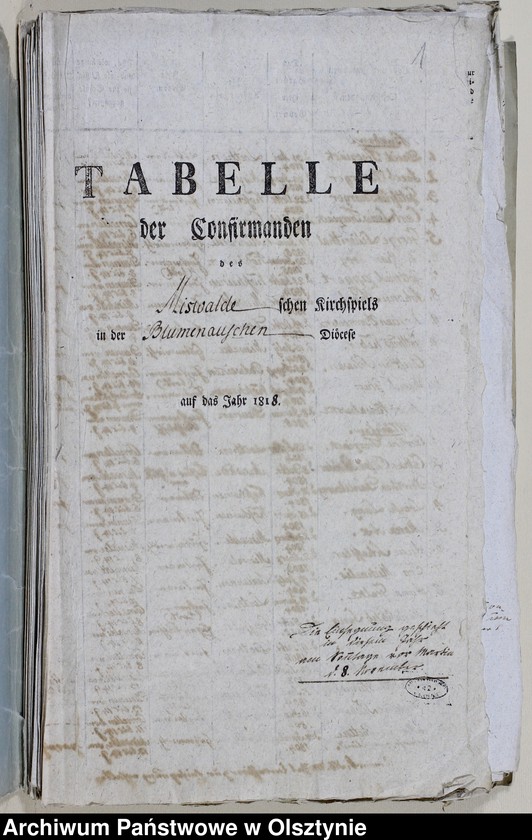 1
TABELLE
der Confirmanden
des
Miswalde schen Kirchspiels
in der Blumenauschen Diöcese
auf das Jahr 1818.
Die Einsegnung geschieht
in diesem Jahr
am Sonntage vor Martin
d. 8. November.
Archiwum Państwowe w Olsztynie